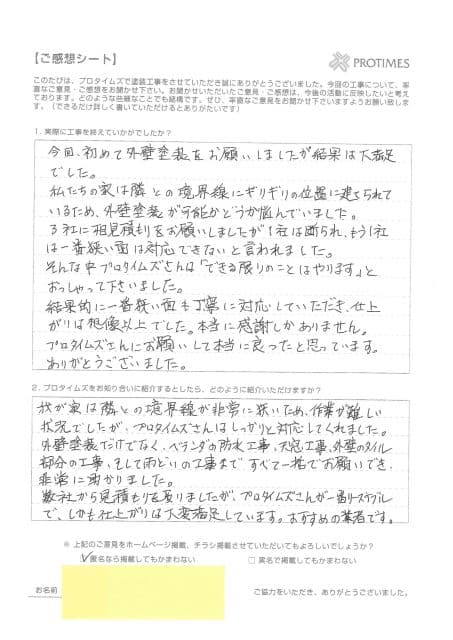 【ご感想シート】
PROTIMES
このたびは、プロタイムズで塗装工事をさせていただき誠にありがとうございました。今回の工事について、率
直なご意見・ご感想をお聞かせ下さい。お聞かせいただいたご意見・ご感想は、今後の活動に反映したいと考え
ております。どのような些細なことでも結構です。ぜひ、率直なご意見をお聞かせ下さいますようお願い致しま
す。（できるだけ詳しく書いていただけるとありがたいです）
1. 実際に工事を終えていかがでしたか？
今回、初めて外壁塗装をお願いしましたが結果は大満足
でした。
私たちの家は隣との境界線にギリギリの位置に建てられて
いるため、外壁塗装が可能かどうか悩んでいました。
3社に相見積もりをお願いしましたが1社は断られ、もう1社
は一番狭い面は対応できないと言われました。
そんな中プロタイムズさんは「できる限りのことはやります」と
おっしゃって下さいました。
結果的に一番狭い面も丁寧に対応していただき、仕上
がりは想像以上でした。本当に感謝しかありません。
プロタイムズさんにお願いして本当に良ったと思っています。
ありがとうございました。
2. プロタイムズをお知り合いに紹介するとしたら、どのように紹介いただけますか？
我が家は隣との境界線が非常に狭いため、作業が難しい
状況でしたが、プロタイムズさんはしっかりと対応してくれました。
外壁塗装だけでなく、ベランダの防水工事、天窓工事、外壁のタイル
部分の工事、そして雨どいの工事まですべて一括でお願いでき、
非常に助かりました。
数社から見積もりを取りましたが、プロタイムズさんが一番リーズナブル
で、しかも仕上がりは大変満足しています。おすすめの業者です。
※ 上記のご意見をホームページ掲載、チラシ掲載させていただいてもよろしいでしょうか？
☑匿名なら掲載してもかまわない □実名で掲載してもかまわない
お名前
ご協力をいただき、ありがとうございました。